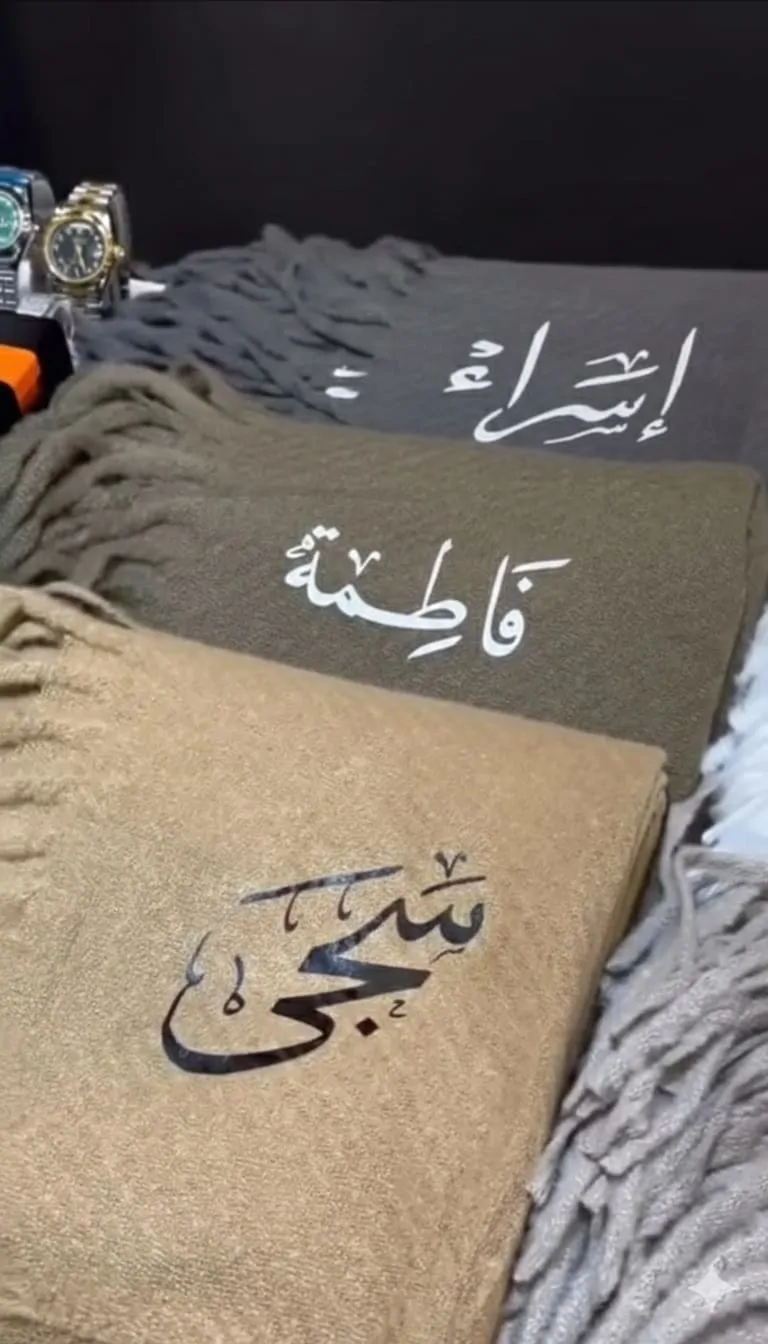 إسراء
فاطمة
سجى